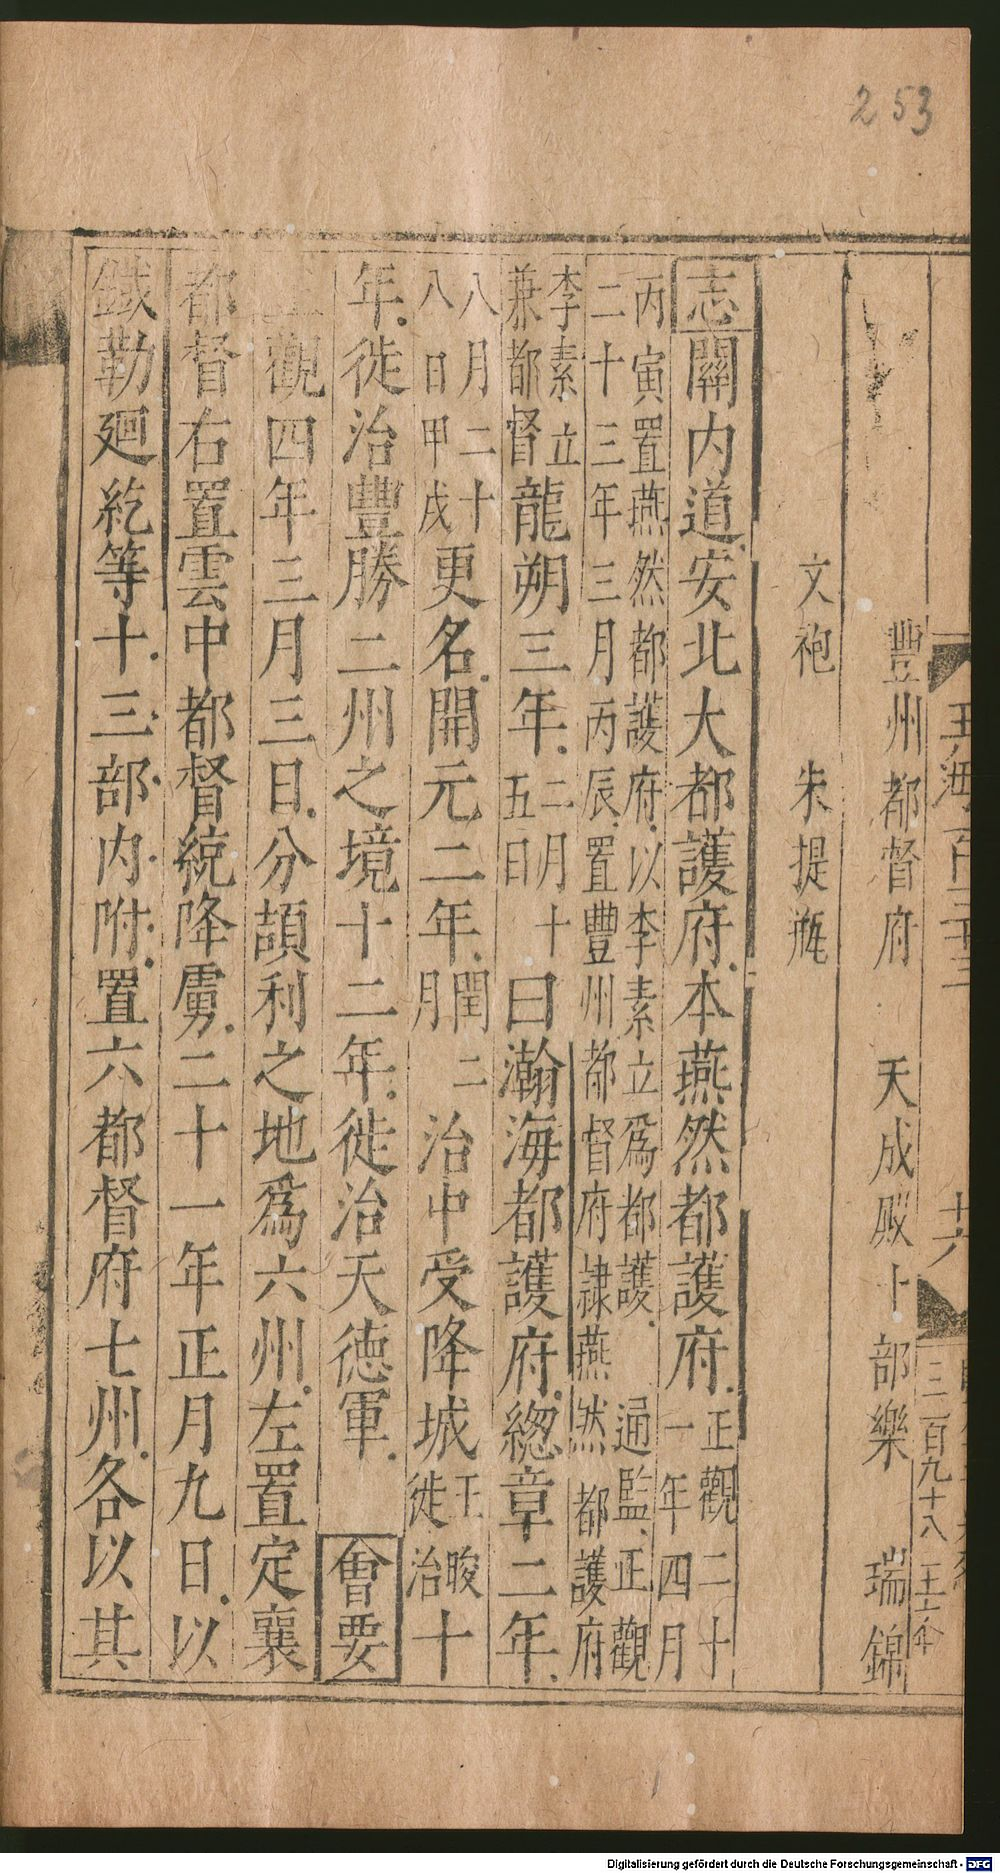 253
豐州都督府 天成殿十部樂 瑞錦
文袍 朱提瓶
志關内道安北大都護府本燕然都護府正觀二十一年四月
丙寅置燕然都護府以李素立爲都護通監正觀二十三年三月丙辰置豐州都督府隷燕然都護府
李素立兼都督龍朔三年二月十五日曰瀚海都護府總章二年
八月二十八日甲戌更名開元二年閏二月治中受降城王晙徙治十
年徙治豐勝二州之境十二年徙治天德軍會要
觀四年三月三日分頡利之地爲六州左置定襄
都督右置雲中都督統降虜二十一年正月九日以
鐵勒廻紇等十三部内附置六都督府七州各以其
玉海
十六
三百九十八
Digitalisierung gefördert durch die Deutsche Forschungsgemeinschaft - DFG